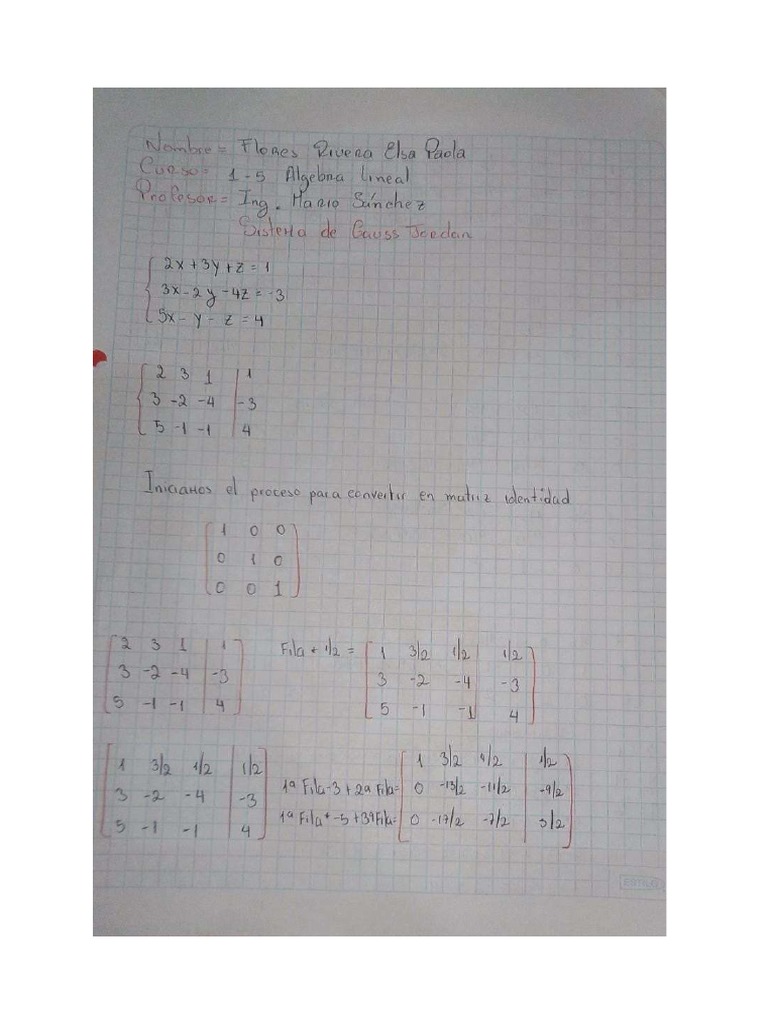 Nombre = Flores Rivera Elsa Paola
Curso = 1-5 Algebra lineal
Profesor = Ing. Mario Sánchez
Sistema de Gauss Jordan
2x + 3y + z = 1
3x - 2y - 4z = -3
5x - y - z = 4
2 3 1 | 1
3 -2 -4 | -3
5 -1 -1 | 4
Iniciamos el proceso para convertir en matriz identidad
1 0 0
0 1 0
0 0 1
2 3 1 | 1 Fila * 1/2 = 1 3/2 1/2 | 1/2
3 -2 -4 | -3 3 -2 -4 | -3
5 -1 -1 | 4 5 -1 -1 | 4
1 3/2 1/2 | 1/2 1 3/2 1/2 | 1/2
3 -2 -4 | -3 1ª Fila-3 + 2ª Fila= 0 -13/2 -11/2 | -9/2
5 -1 -1 | 4 1ª Fila*-5 + 3ª Fila= 0 -17/2 -7/2 | 3/2
ESTILO